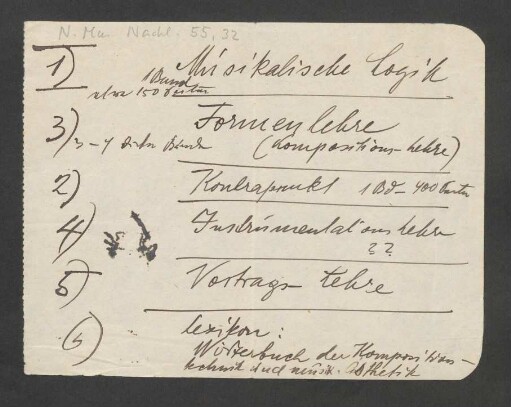 N. Mus. Nachl. 55, 32
1) Musikalische Logik
1 Band
etwa 150 Seiten
3) Formenlehre
3–4 dicke Bände (Kompositions-Lehre)
2) Kontrapunkt 1 Bd – 400 Seiten
4) Instrumentationslehre
??
5) Vortrags-Lehre
6) Lexikon:
Wörterbuch der Kompositions-
technik und musik. Ästhetik